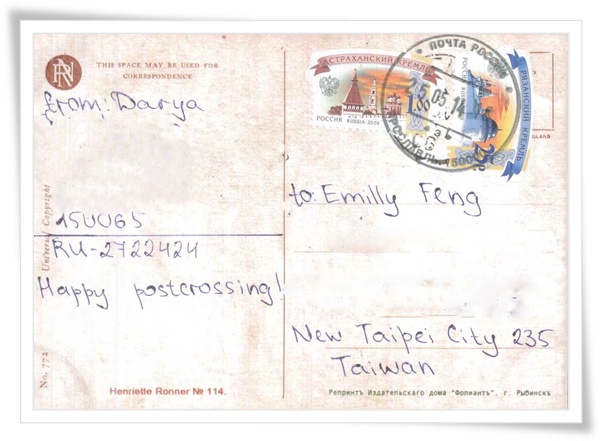 THIS SPACE MAY BE USED FOR
CORRESPONDENCE
from: Darya
150065
RU-2722424
Happy postcrossing!
Universal Copyright
No. 772
Henriette Ronner № 114.
АСТРАХАНСКИЙ КРЕМЛЬ
РОССИЯ RUSSIA-2009
1.00
РЯЗАНСКИЙ КРЕМЛЬ
25
ПОЧТА РОССИИ
25 05 14
ЯРОСЛАВЛЬ 1500
to: Emilly Feng
New Taipei City 235
Taiwan
Репринт Издательского дома "Фолиантъ", г. Рыбинскъ